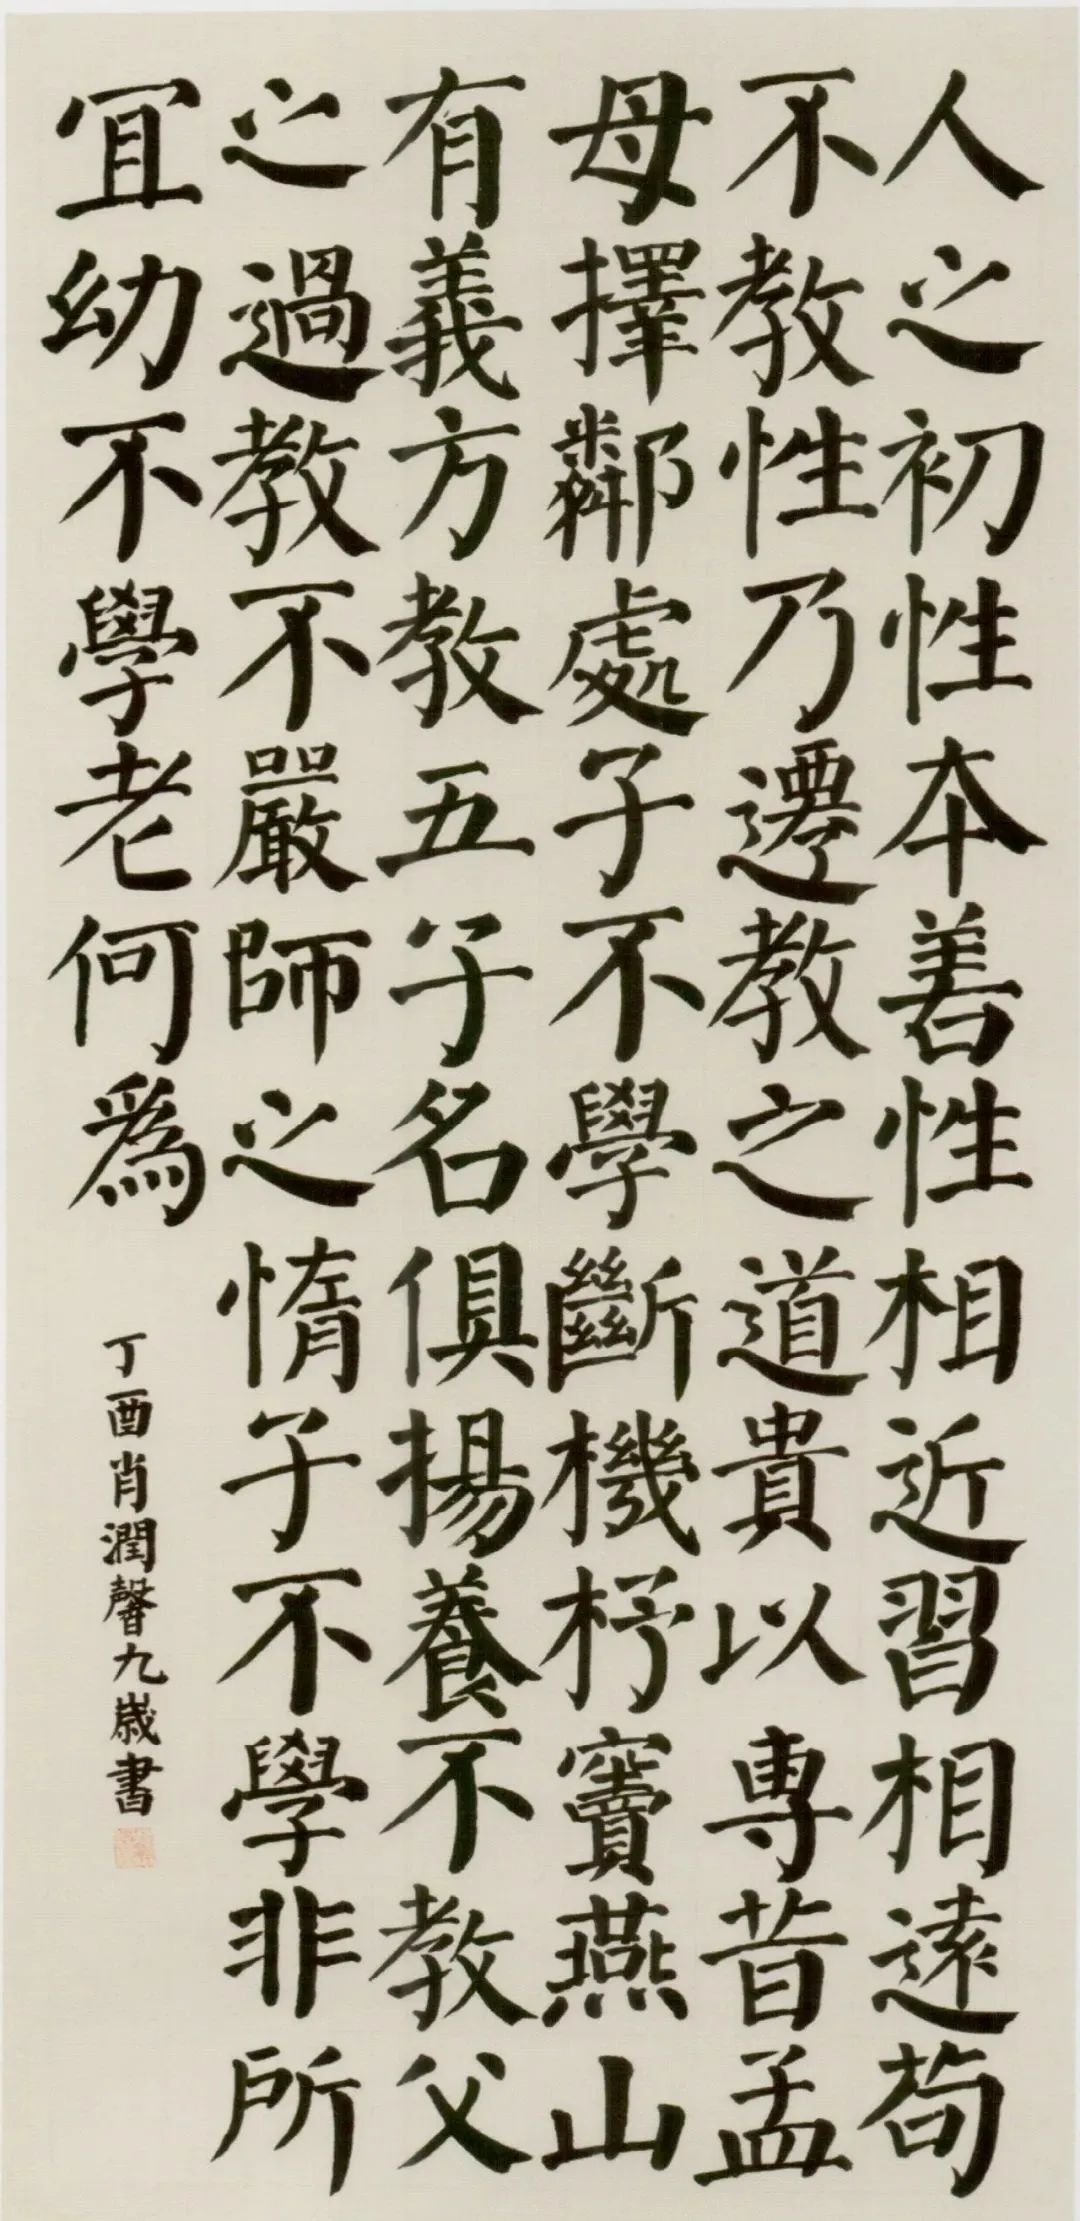 人之初性本善性相近習相遠苟
不教性乃遷教之道貴以專昔孟
母擇鄰處子不學斷機杼竇燕山
有義方教五子名俱揚養不教父
之過教不嚴師之惰子不學非所
冝幼不學老何爲
丁酉肖潤馨九歲書